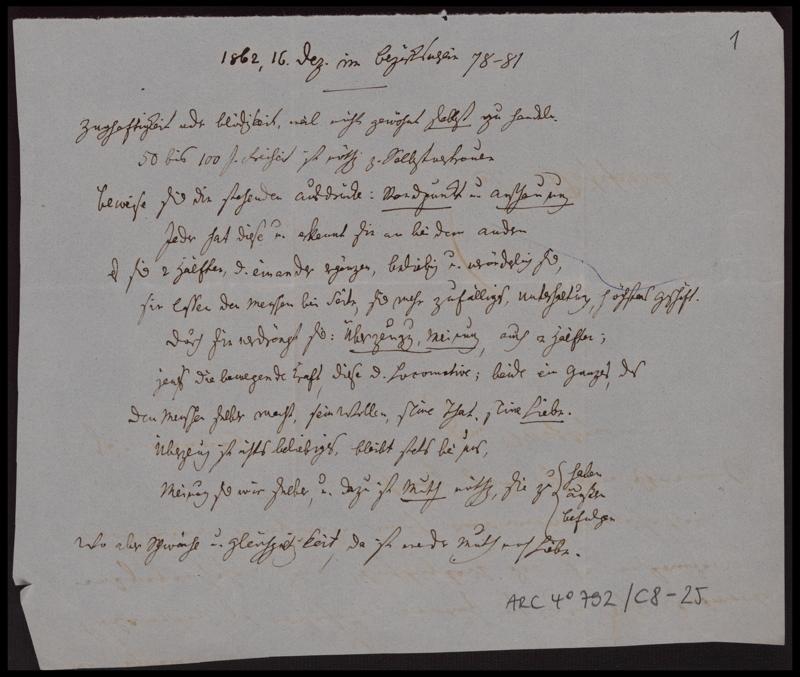 1
1862, 16. Dez. im Bezirksverein 78-81
Zaghaftigkeit oder Blödigkeit, weil nicht gewöhnt selbst zu handeln.
50 bis 100 J. Freiheit ist nöthig z. Selbstvertrauen
Beweise sind die stehenden Ausdrücke: Standpunkt u. Anschauung
Jeder hat diese u. erkennt sie an bei dem andern
sie 2 Hälften, d. einander ergänzen, beliebig u. veränderlich sind,
sie lassen den Menschen bei Seite, sind mehr zufälliges, Unterhaltung, höchstens Geschäft.
Durch sie verdrängt sind: Überzeugg, Meinung, auch 2 Hälften;
jene die bewegende Kraft, diese d. Locomotive; beide ein Ganzes, das
den Menschen selber macht, sein Wollen, seine That, seine Liebe.
Überzeug ist nichts beliebiges, bleibt stets bei uns,
Meinung sind wir selber, u. dazu ist Muth nöthig, sie zu haben
äußern
befolgen
Wo aber Schwäche u. Gleichgültigkeit, da ist weder Muth noch Liebe.
ARC 4° 792/C8-25